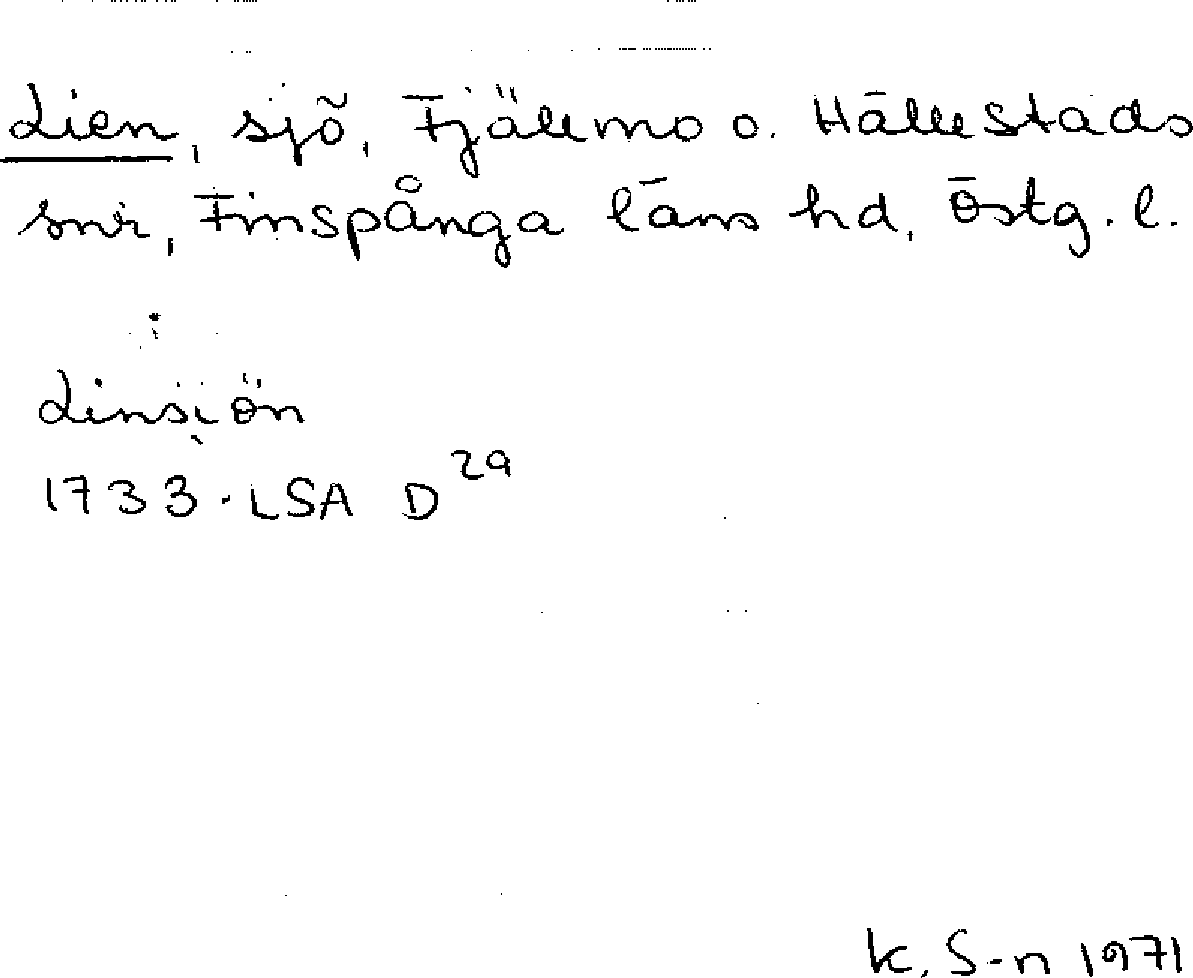 Lien, sjö, Tjällmo o. Hällestads
snr, Finspånga läns hd, Östg. l.
Linsiön
1733. LSA D 29
K. S-n 1971